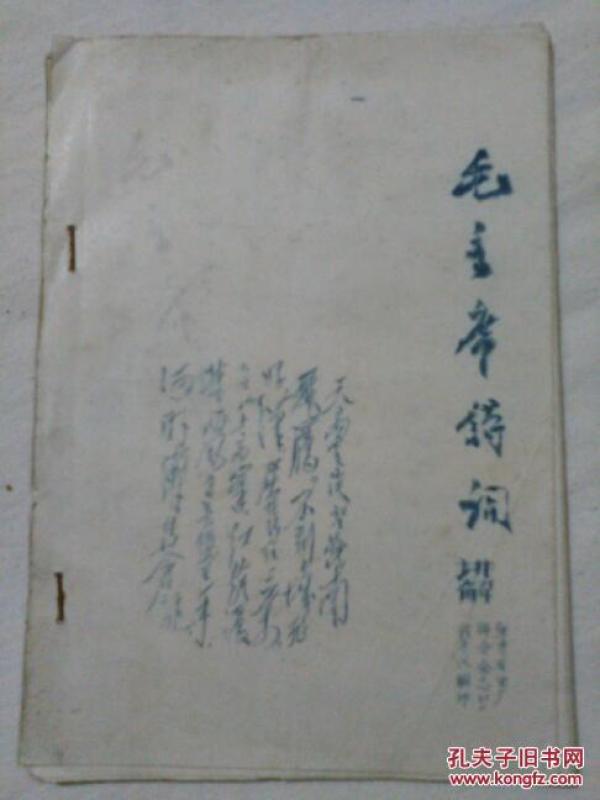 毛主席詩词
天高云淡望断南
飛雁不到長城非
好漢屈指行程二万
六盘山上高峰红旗漫
卷西风今日長缨在手
何时缚住苍龙
孔夫子旧书网
www.kongfz.com